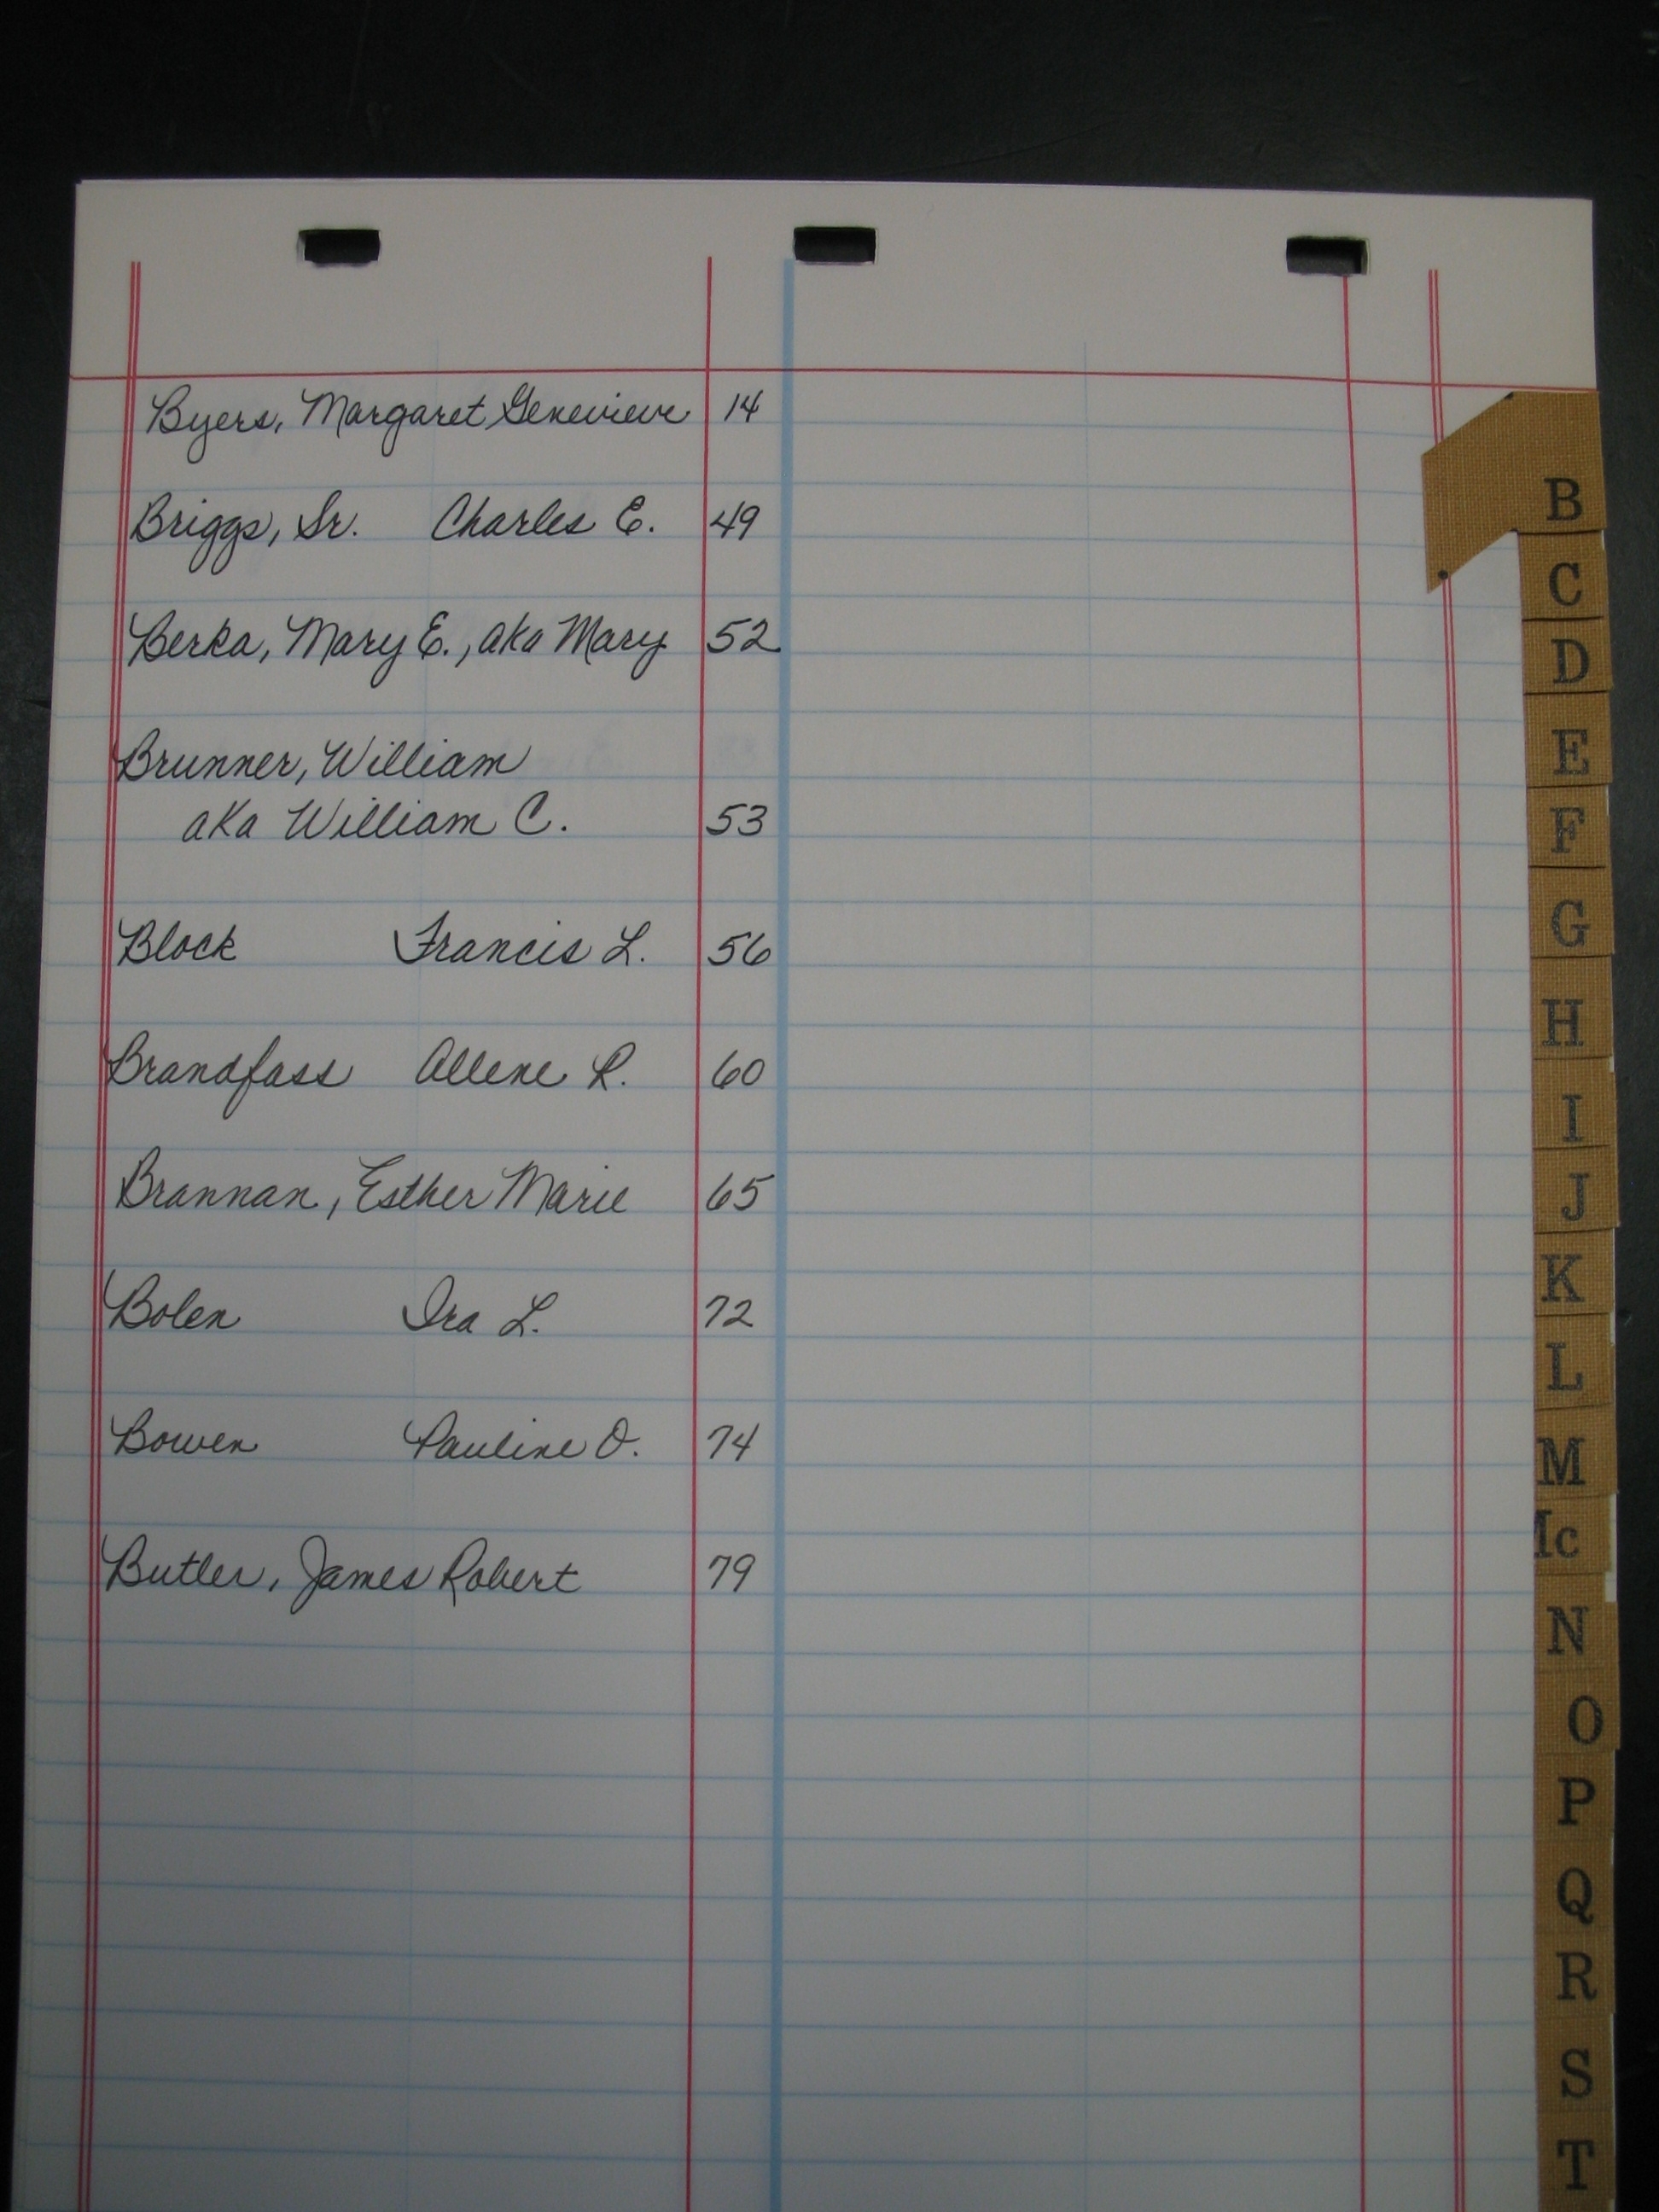 Byers, Margaret Genevieve 14
Briggs, Sr. Charles E. 49
Berka, Mary E., aka Mary 52
Brunner, William
aka William C. 53
Block Francis L. 56
Brandfass Allene R. 60
Brannan, Esther Marie 65
Bolen Ira L. 72
Bowen Pauline O. 74
Butler, James Robert 79
B
C
D
E
F
G
H
I
J
K
L
M
Mc
N
O
P
Q
R
S
T